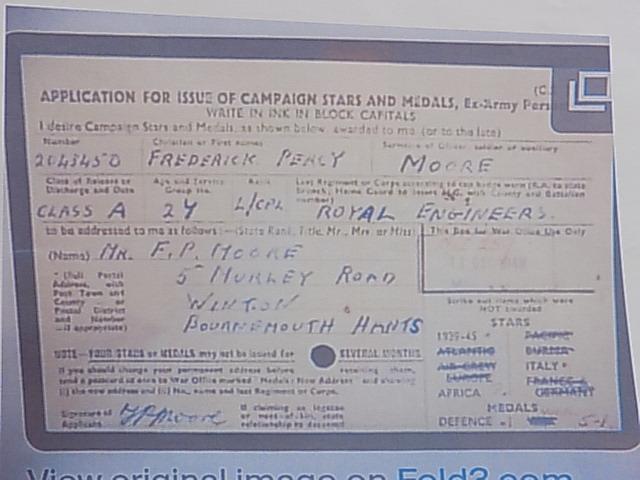 APPLICATION FOR ISSUE OF CAMPAIGN STARS AND MEDALS, Ex-Army Pers
WRITE IN INK IN BLOCK CAPITALS
I desire Campaign Stars and Medals, as shown below, awarded to me (or to the late)
Number Christian or First names Surname of Officer, soldier or auxiliary
2043450 FREDERICK PERCY MOORE
Class of Release or Discharge and Date
Age and Service Group No.
Rank
Last Regiment or Corps according to cap badge worn (R.A. to state Branch; Home Guard to insert H.G. with County and Battalion number)
CLASS A 24 L/CPL ROYAL ENGINEERS.
to be addressed to me as follows:—(State Rank, Title, Mr., Mrs. or Miss)
This Box for War Office Use Only
(Name) MR. F. P. MOORE
* (Full Postal Address, with Post Town and County — or Postal District and Number —if appropriate)
5 MURLEY ROAD
WINTON
BOURNEMOUTH HANTS
Strike out items which were NOT awarded
STARS
1939-45 PACIFIC
ATLANTIC BURMA
AIR CREW EUROPE ITALY
AFRICA FRANCE & GERMANY
MEDALS
DEFENCE 5-1
NOTE—YOUR STARS or MEDALS may not be issued for SEVERAL MONTHS
If you should change your permanent address before receiving them,
send a postcard at once to War Office marked "Medals: New Address" and showing
(i) the new address and (ii) No., name and last Regiment or Corps.
Signature of Applicant FPMoore
If claiming as legatee or next-of-kin, state relationship to deceased
View original image on Fold3.com